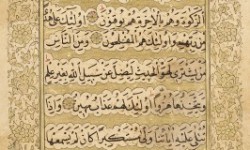 الزَّكٰوةَ وَهُمْ بِالْاٰخِرَةِ هُمْ يُوقِنُونَ اُولٰئِكَ عَلٰى هُدًى
مِنْ رَبِّهِمْ وَاُولٰئِكَ هُمُ الْمُفْلِحُونَ وَمِنَ النَّاسِ
مَنْ يَشْتَرِي لَهْوَ الْحَدِيثِ لِيُضِلَّ عَنْ سَبِيلِ اللّٰهِ بِغَيْرِ عِلْمٍ
وَيَتَّخِذَهَا هُزُوًا اُولٰئِكَ لَهُمْ عَذَابٌ مُهِينٌ وَاِذَا
تُتْلٰى عَلَيْهِ اٰيَاتُنَا وَلّٰى مُسْتَكْبِرًا كَاَنْ لَمْ يَسْمَعْهَا